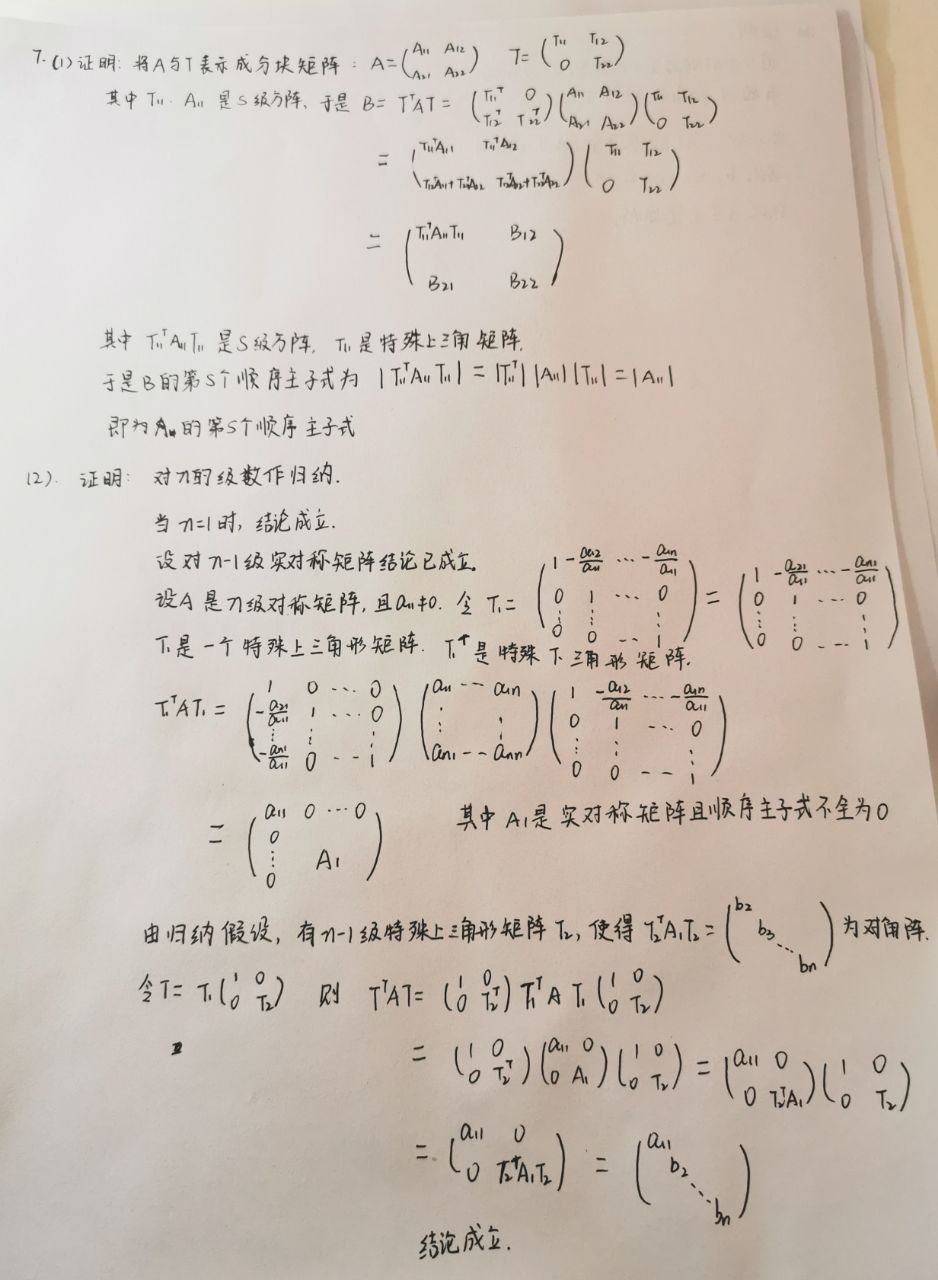 7.(1)证明: 将A与T表示成分块矩阵: A=(A₁₁ A₁₂; A₂₁ A₂₂) T=(T₁₁ T₁₂; 0 T₂₂)
其中T₁₁. A₁₁是S级方阵, 于是 B=TᵀAT=(T₁₁ᵀ 0; T₁₂ᵀ T₂₂ᵀ)(A₁₁ A₁₂; A₂₁ A₂₂)(T₁₁ T₁₂; 0 T₂₂)
=(T₁₁ᵀA₁₁ T₁₁ᵀA₁₂; T₁₂ᵀA₁₁+T₂₂ᵀA₁₂ T₁₂ᵀA₁₂+T₂₂ᵀA₂₂)(T₁₁ T₁₂; 0 T₂₂)
=(T₁₁ᵀA₁₁T₁₁ B₁₂; B₂₁ B₂₂)
其中 T₁₁ᵀA₁₁T₁₁是S级方阵, T₁₁是特殊上三角矩阵.
于是B的第S个顺序主子式为 |T₁₁ᵀA₁₁T₁₁|=|T₁₁ᵀ||A₁₁||T₁₁|=|A₁₁|
即为A的第S个顺序主子式
(2). 证明: 对n的级数作归纳.
当n=1时, 结论成立.
设对n-1级实对称矩阵结论已成立.
设A是n级对称矩阵, 且a₁₁≠0. 令T₁=(1 -a₁₂/a₁₁ ⋯ -a₁ₙ/a₁₁; 0 1 ⋯ 0; ⋮ ⋮ ⋮; 0 0 ⋯ 1)=(1 -a₂₁/a₁₁ ⋯ -aₙ₁/a₁₁; 0 1 ⋯ 0; ⋮ ⋮ ⋮; 0 0 ⋯ 1)
T₁是一个特殊上三角形矩阵. T₁ᵀ是特殊下三角形矩阵.
T₁ᵀAT₁=(1 0 ⋯ 0; -a₂₁/a₁₁ 1 ⋯ 0; ⋮ ⋮ ⋮; -aₙ₁/a₁₁ 0 ⋯ 1)(a₁₁ ⋯ a₁ₙ; ⋮ ⋮; aₙ₁ ⋯ aₙₙ)(1 -a₁₂/a₁₁ ⋯ -a₁ₙ/a₁₁; 0 1 ⋯ 0; ⋮ ⋮ ⋮; 0 0 ⋯ 1)
=(a₁₁ 0 ⋯ 0; 0; ⋮ A₁; 0) 其中A₁是实对称矩阵且顺序主子式不全为0
由归纳假设, 有n-1级特殊上三角形矩阵T₂, 使得T₂ᵀA₁T₂=(b₂ b₃ ⋱ bₙ)为对角阵.
令T=T₁(1 0; 0 T₂) 则 TᵀAT=(1 0; 0 T₂ᵀ)T₁ᵀAT₁(1 0; 0 T₂)
=(1 0; 0 T₂ᵀ)(a₁₁ 0; 0 A₁)(1 0; 0 T₂)=(a₁₁ 0; 0 T₂ᵀA₁)(1 0; 0 T₂)
=(a₁₁ 0; 0 T₂ᵀA₁T₂)=(a₁₁ b₂ ⋱ bₙ)
结论成立.